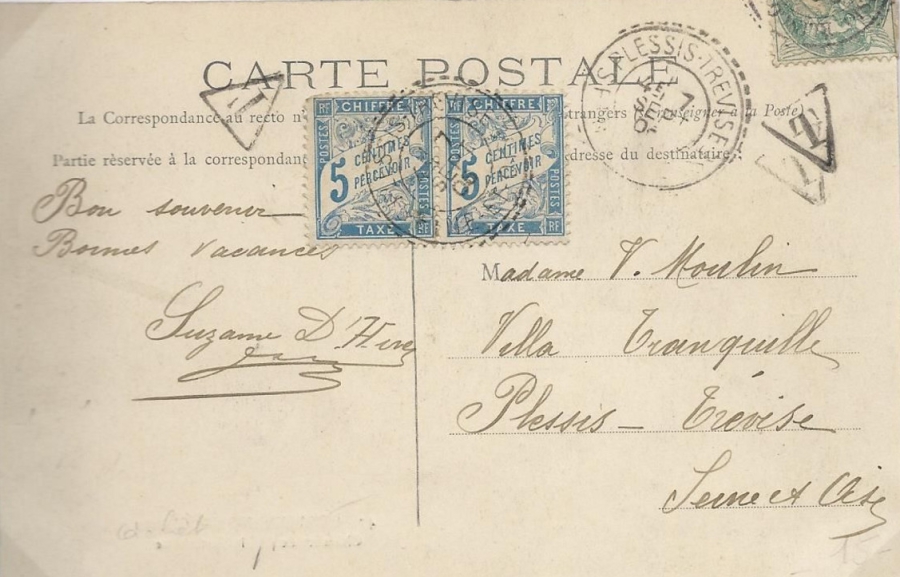 CARTE POSTALE
La Correspondance au recto n
trangers (Se renseigner à la Poste)
Partie rèservée à la correspondan
dresse du destinataire.
T
T
T
RF CHIFFRE
POSTES
5 CENTIMES
A PERCEVOIR
TAXE RF
RF CHIFFRE
5 CENTIMES
A PERCEVOIR
POSTES
TAXE RF
PLESSIS-TREVISE
7
SEPT
Bon souvenir
Bonnes vacances
Suzanne D'
Madame V. Moulin
Villa Tranquille
Plessis – Trévise
Seine et Oise
15-